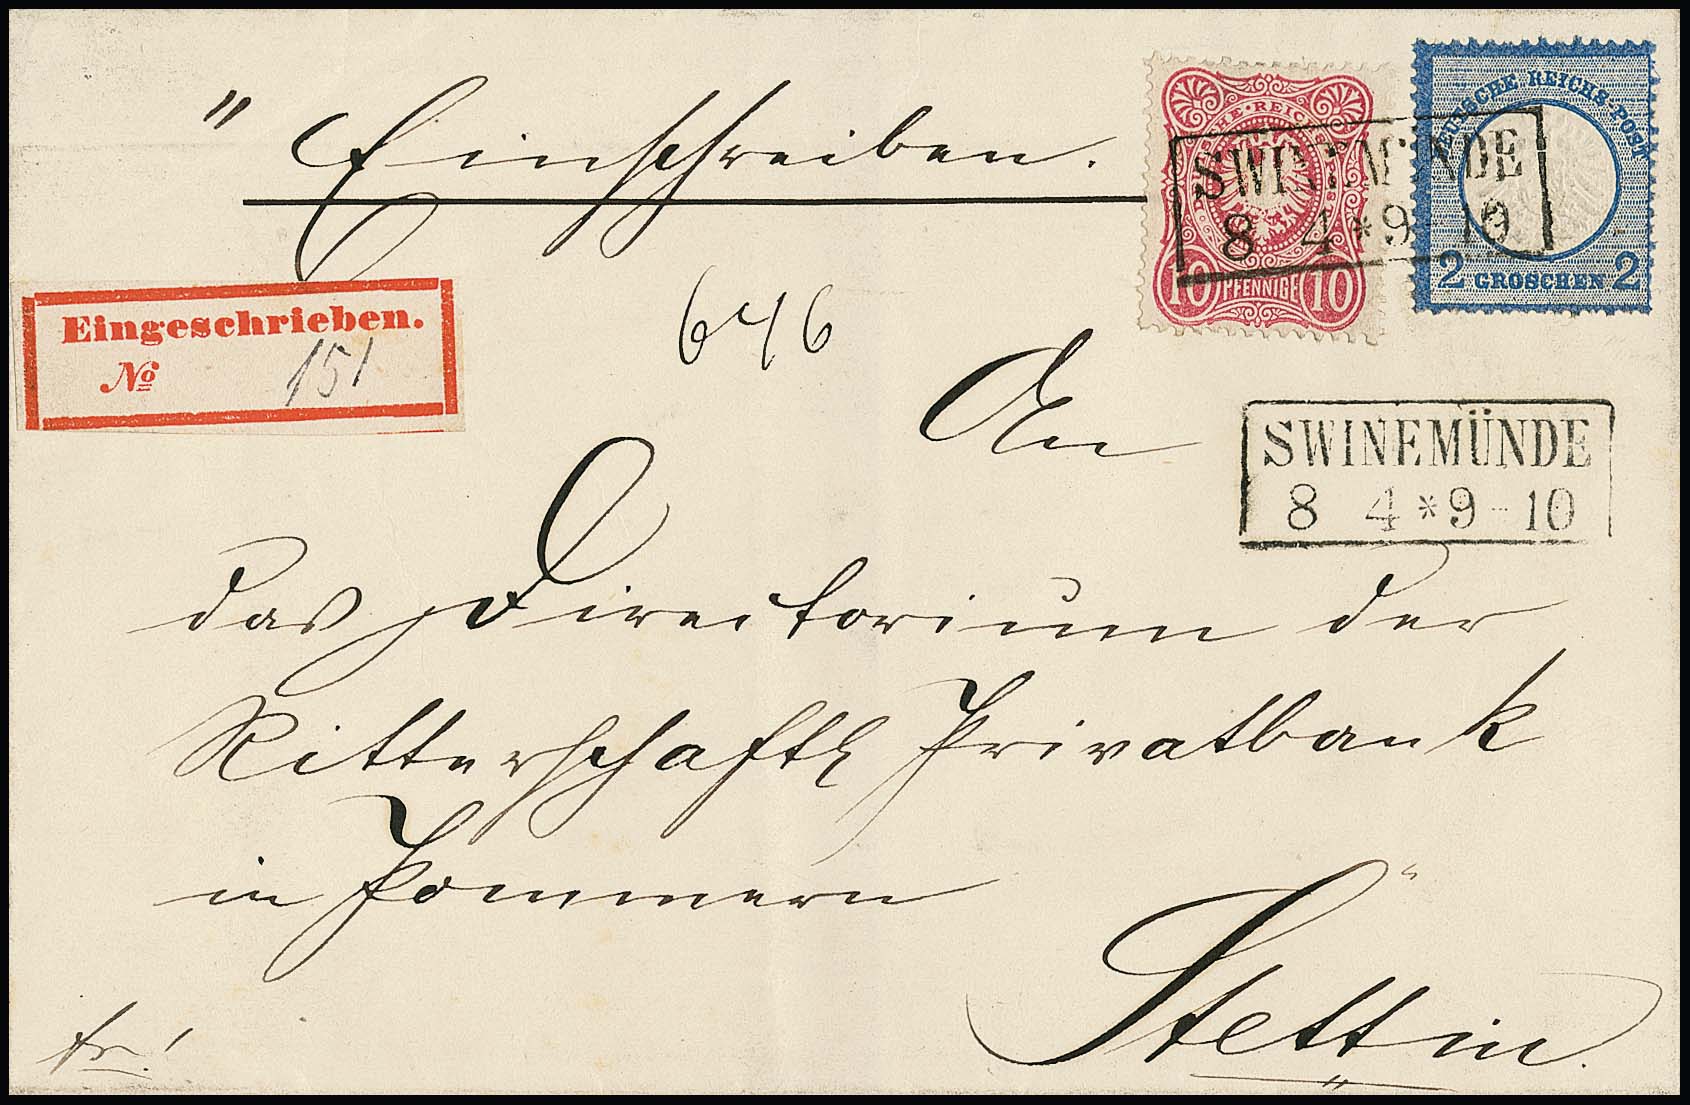 " Einschreiben.
E·REICHS
10 PFENNIGE 10
DEUTSCHE REICHS-POST
2 GROSCHEN 2
SWINEMÜNDE
8 4 * 9 - 10
Eingeschrieben.
No 151
646
An
SWINEMÜNDE
8 4 * 9 - 10
das Directorium der
Ritterschaftl Privatbank
in Pommern
Stettin.
fr.!